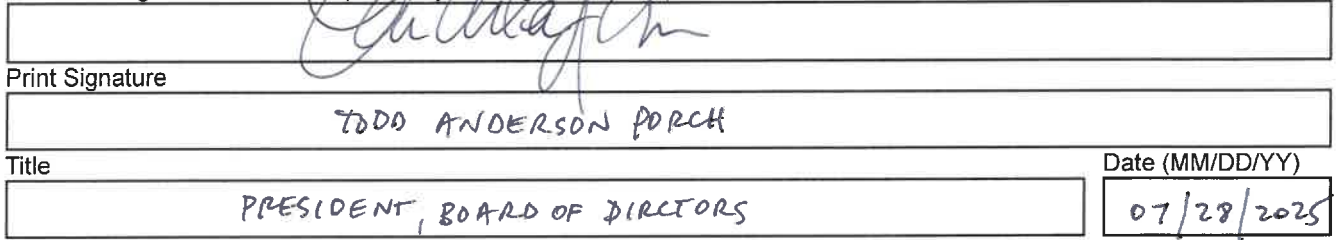 Print Signature
TODD ANDERSON PORCH
Title
Date (MM/DD/YY)
PRESIDENT, BOARD OF DIRCTORS
07/28/2025